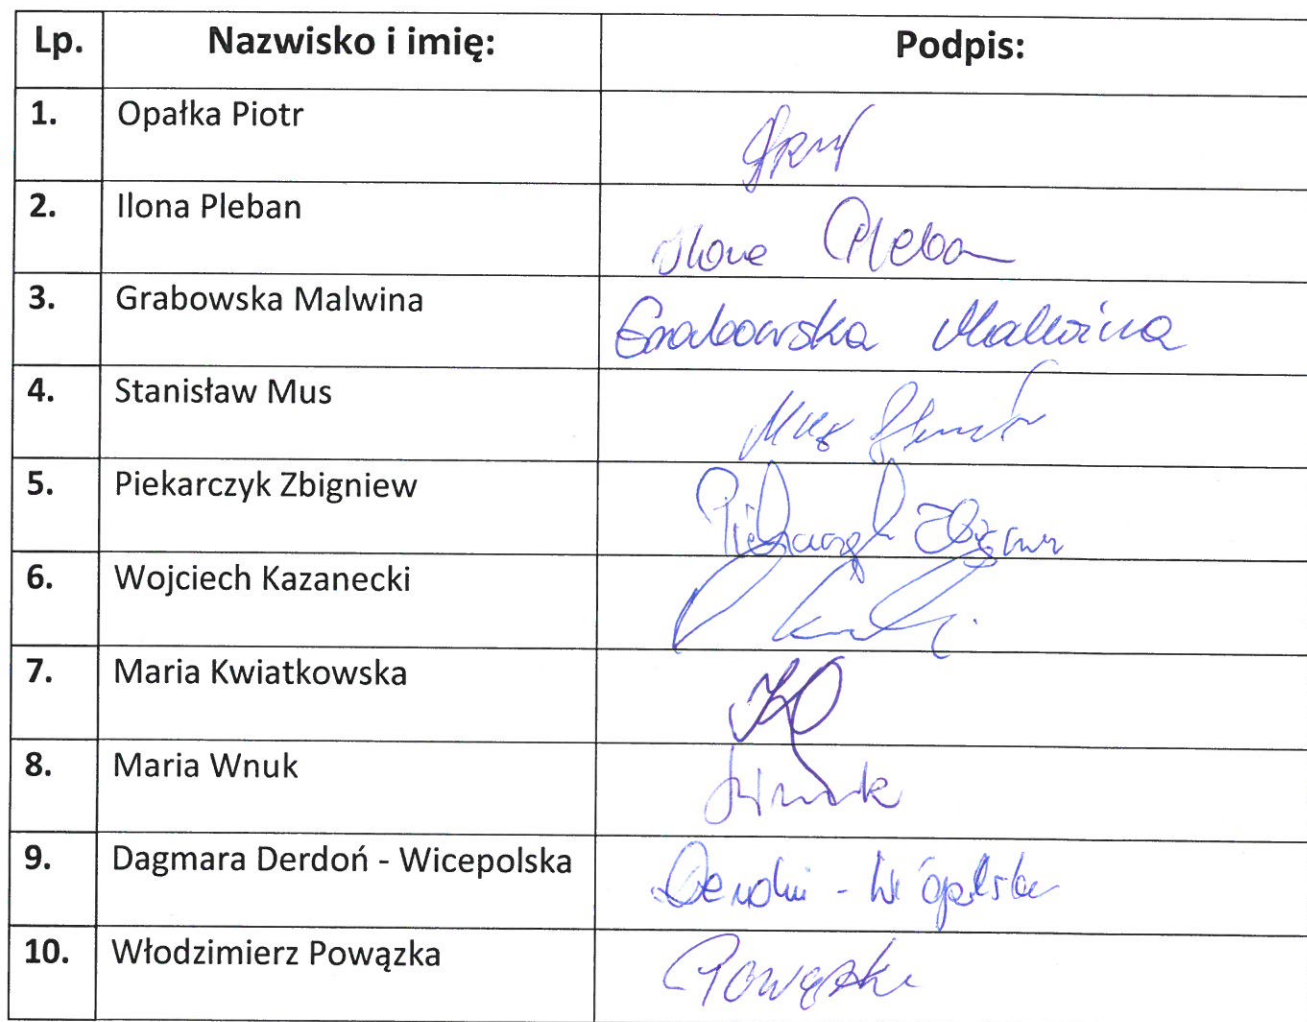 Lp. Nazwisko i imię: Podpis:
1. Opałka Piotr
2. Ilona Pleban Ilona Pleban
3. Grabowska Malwina Grabowska Malwina
4. Stanisław Mus Mus
5. Piekarczyk Zbigniew Piekarczyk Zbigniew
6. Wojciech Kazanecki
7. Maria Kwiatkowska
8. Maria Wnuk
9. Dagmara Derdoń - Wicepolska
10. Włodzimierz Powązka Powązka